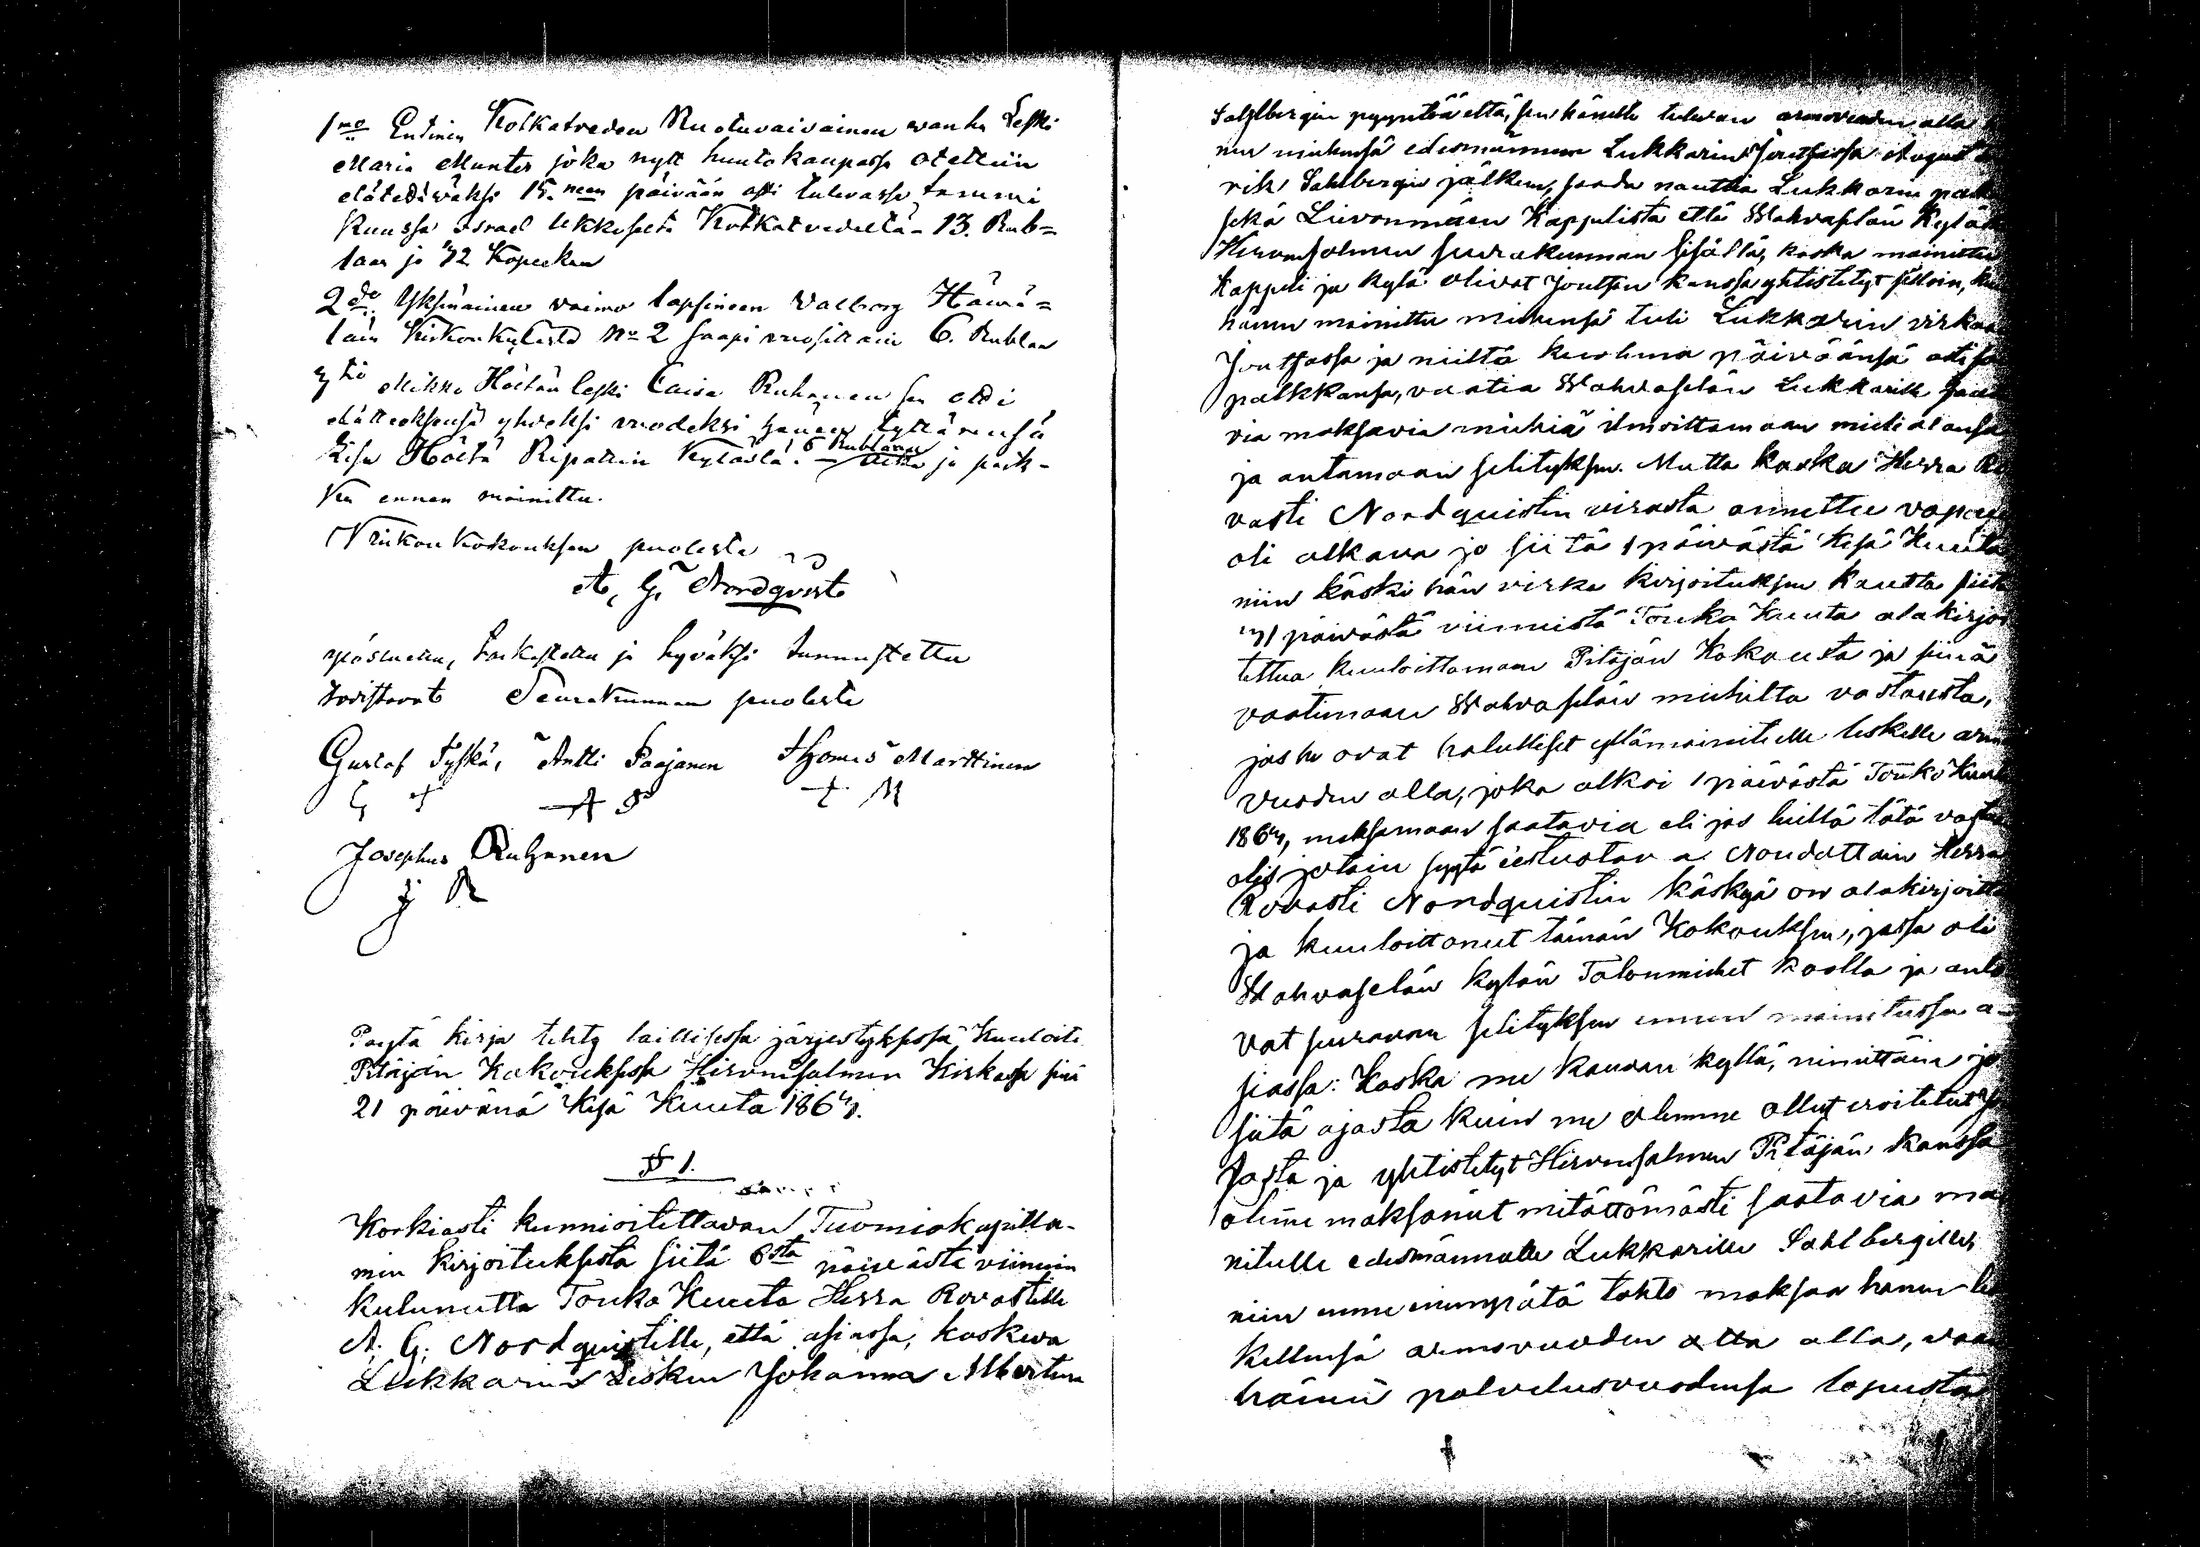 1mo Entinen Kotkatveden Ruotuvaivainen wanha Leski
Maria Munter joka nytt huutokaupassa otettiin
elätettäwäksi 15.neen päivään asti tulevassa tammi
Kuussa Israel Ukkoselta Kotkatvedeltä 13. Rub=
laan ja 72 Kopeekan
2do Yksinäinen vaimo lapsineen Valborg Hämä=
läin Kirkonkylästä No 2 saapi vuosittain 6. Rublaa
3tio Mikko Höltän leski Caisa Ruhanen sen otti
elätteeksensä yhdeksi vuodeksi hänen tyttärensä
Lisa Höltä Ripatin Kylästä. 6 Rublaan ja paik-
ka ennen mainittu.
Kirkon Kokouksen puolesta
A. G. Nordqvist
ylösluettu, tarkastettu ja hyväksi tunnustettu
todistavat Seurakunnan puolesta
Gustaf Tyskä, Antti Paajanen Thomas Marttinen
G T A P T M
Josephus Ruhanen
J R
Pöytä kirja tehty laillisessa järjestyksessä Kuuloite
Pitäjän Kokouksessa Hirvensalmen Kirkossa sinä
21 päivänä Kesä Kuuta 1864.
§ 1.
Korkiasti kunnioitettavan Tuomiokapitta-
min kirjoituksesta siitä 6sta päivästä viimein
kulunutta Touko Kuuta Herra Rovastille
A. G. Nordquistille, että asiassa, koskeva
Lukkarin Lesken Johanna Albertina
Sahlbergin pyyntöä että, sen hänelle tulevan armovuoden alla
nen miehensä edesmänneen Lukkarin Joutsassa August
rik Sahlbergin jälkeen, saada nauttia Lukkarin palk
sekä Lievonmäen Kappelista että Wahvaselän Kyläst
Hirvensalmen seurakunnan sisällä, koska mainittu
Kappeli ja kylä olivat Joutsan kanssa yhtistetyt silloin, ku
hänen mainittu miehensä tuli Lukkarin virkaa
Joutsassa ja niiltä kuolema päiväänsä asti sa
palkkansa, vaatia Wahvaselän Lukkarille saata
via maksavia miehiä ilmoittamaan mieli alansa
ja antamaan selityksen. Mutta koska Herra Ro
vasti Nordquistin virasta annettu vapaus
oli alkava jo siitä 1 päivästä Kesä Kuuta
niin käski hän virka kirjoituksen kautta siitä
31 päivästä viimeistä Touko Kuuta alakirjoi
tettua kuuloittamaan Pitäjän Kokousta ja siinä
vaatimaan Wahvaselän miehiltä vastausta,
jos he ovat halulliset yllämainitulle leskelle armo
vuoden alla, joka alkoi 1 päivästä Touko Kuuta
1864, maksamaan saatavia eli jos heillä tätä vastaan
olis jotain syytä estustava. Noudattain Herra
Rovasti Nordquistin käskyä on alakirjoitta
ja kuuloittanut tämän Kokouksen, jossa oli
Wahvaselän kylän Talonmiehet koolla ja anto
vat seuraavan selityksen ennen mainitussa a-
siassa: Koska me kauvan kyllä, nimittäin jo
siitä ajasta kuin me olemme ollut eroitetut Jo
sasta ja yhtistetyt Hirvensalmen Pitäjän kanssa
olemme maksanut mitättömästi saatavia mai
nitulle edesmännelle Lukkarille Sahlbergille,
niin emme enempätä tahto maksaa hänen les
kellensä armovuoden alla, vaan
hänen palvelusvuodensa lopusta